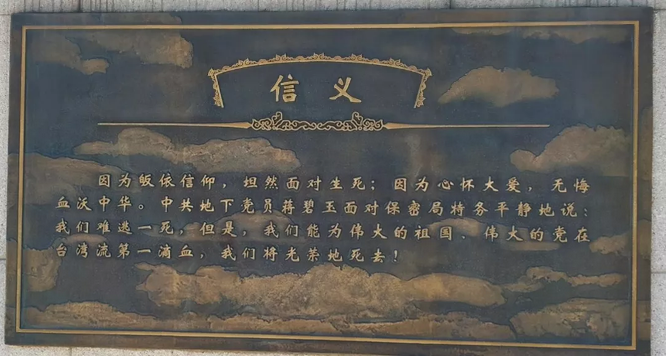 信义
因为皈依信仰，坦然面对生死；因为心怀大爱，无悔
血沃中华。中共地下党员蒋碧玉面对保密局特务平静地说：
我们难逃一死，但是，我们能为伟大的祖国、伟大的党在
台湾流第一滴血，我们将光荣地死去！